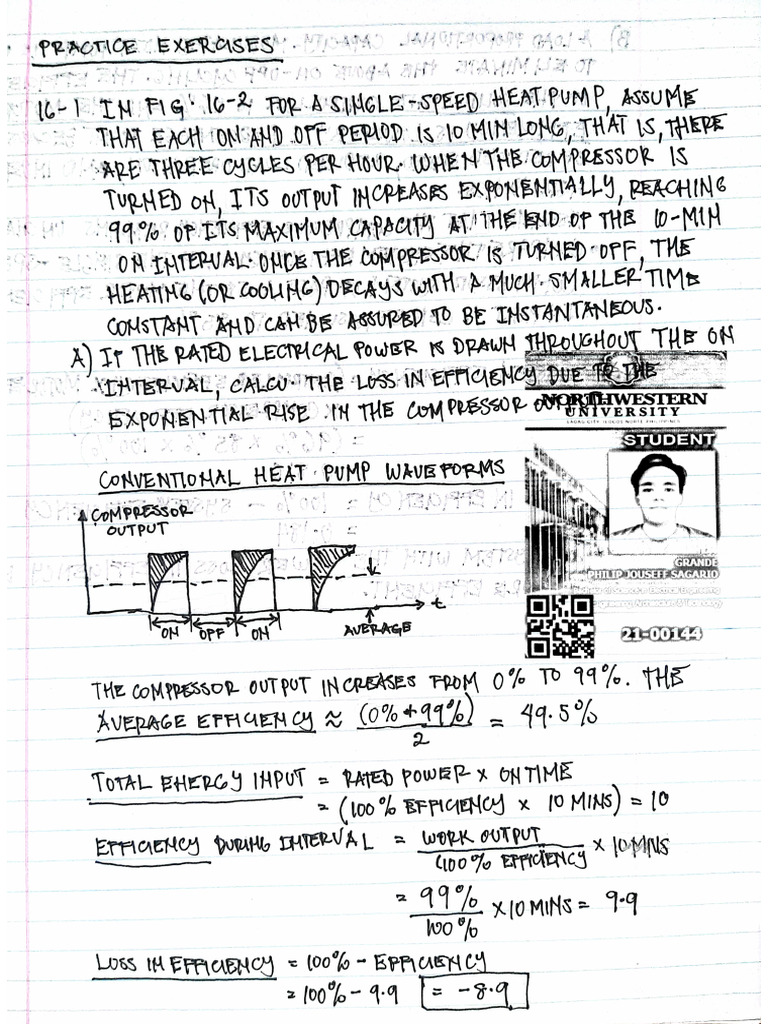 PRACTICE EXERCISES
16-1 IN FIG. 16-2 FOR A SINGLE-SPEED HEAT PUMP, ASSUME
THAT EACH ON AND OFF PERIOD IS 10 MIN LONG, THAT IS, THERE
ARE THREE CYCLES PER HOUR. WHEN THE COMPRESSOR IS
TURNED ON, ITS OUTPUT INCREASES EXPONENTIALLY, REACHING
99% OF ITS MAXIMUM CAPACITY AT THE END OF THE 10-MIN
ON INTERVAL. ONCE THE COMPRESSOR IS TURNED OFF, THE
HEATING (OR COOLING) DECAYS WITH A MUCH SMALLER TIME
CONSTANT AND CAN BE ASSURED TO BE INSTANTANEOUS.
A) IF THE RATED ELECTRICAL POWER IS DRAWN THROUGHOUT THE ON
INTERVAL, CALCU. THE LOSS IN EFFICIENCY DUE TO THE
EXPONENTIAL RISE IN THE COMPRESSOR
NORTHWESTERN
UNIVERSITY
STUDENT
GRANDE
PHILIP JOUSEFF SAGARIO
21-00144
CONVENTIONAL HEAT PUMP WAVEFORMS
COMPRESSOR
OUTPUT
t
ON OFF ON AVERAGE
THE COMPRESSOR OUTPUT INCREASES FROM 0% TO 99%. THE
AVERAGE EFFICIENCY ≈ (0% + 99%) / 2 = 49.5%
TOTAL ENERGY INPUT = RATED POWER × ON TIME
= (100% EFFICIENCY × 10 MINS) = 10
EFFICIENCY DURING INTERVAL = WORK OUTPUT / 100% EFFICIENCY × 10 MINS
= 99% / 100% × 10 MINS = 9.9
LOSS IN EFFICIENCY = 100% - EFFICIENCY
= 100% - 9.9 = -8.9